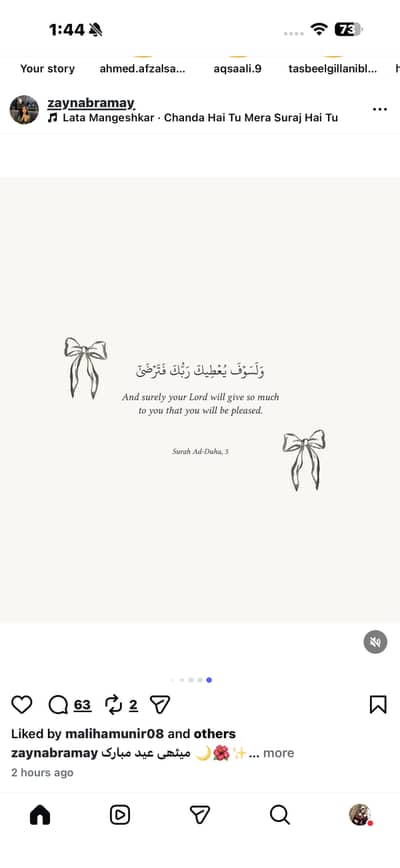 1:44
73
Your story
ahmed.afzalsa...
aqsaali.9
tasbeelgillanibl...
zaynabramay
Lata Mangeshkar · Chanda Hai Tu Mera Suraj Hai Tu
وَلَسَوْفَ يُعْطِيكَ رَبُّكَ فَتَرْضَىٰٓ
And surely your Lord will give so much
to you that you will be pleased.
Surah Ad-Duha, 5
63
2
Liked by malihamunir08 and others
zaynabramay میٹھی عید مبارک 🌙🌺✨... more
2 hours ago